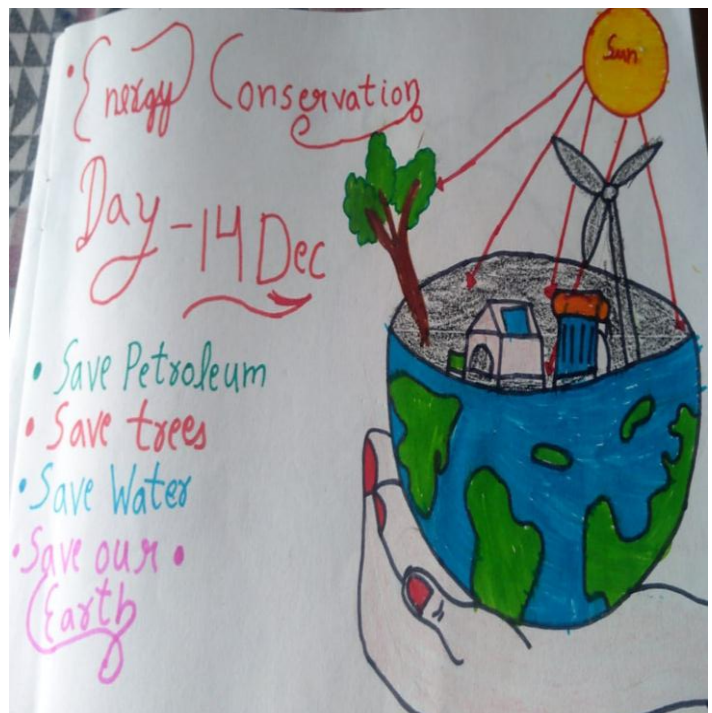 • Energy Conservation
Day - 14 Dec
• Save Petroleum
• Save trees
• Save Water
• Save our •
Earth
Sun